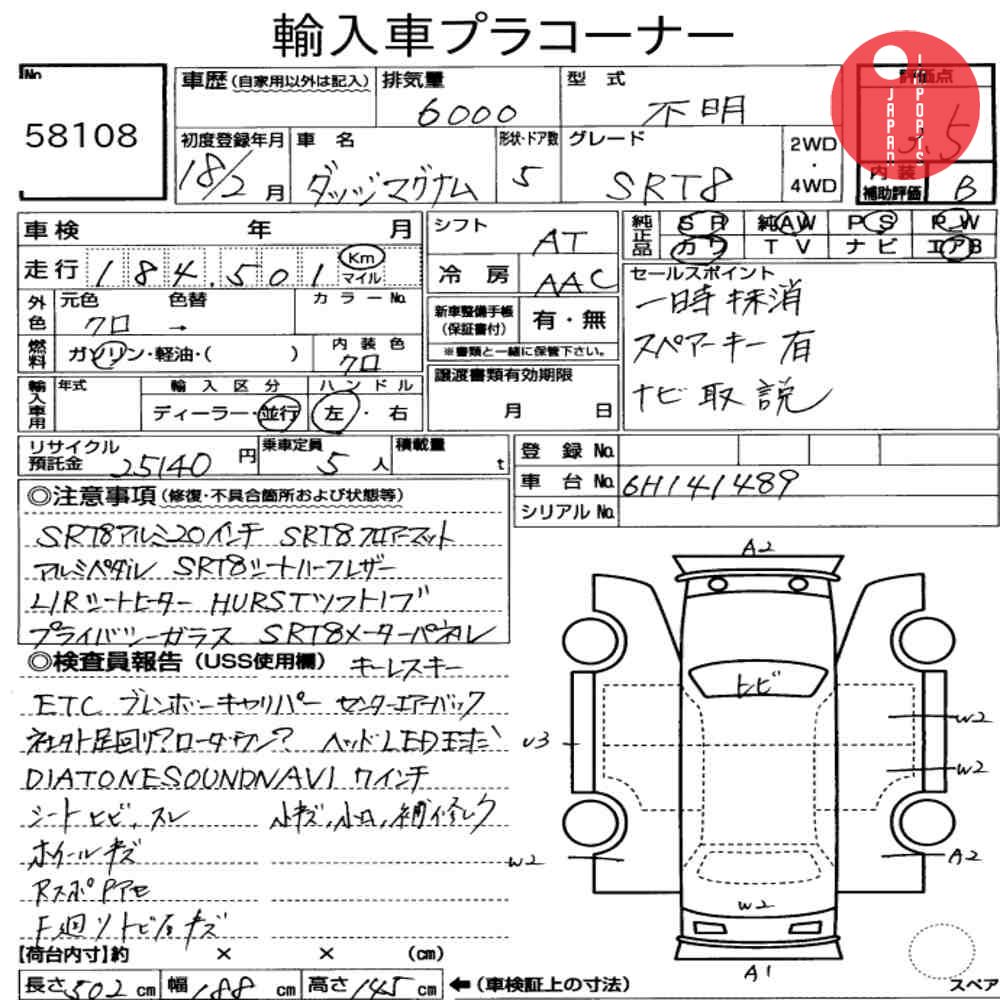 輸入車プラコーナー
No
58108
車歴(自家用以外は記入) 排気量 6000 型式 不明
評価点 3.5
JAPAN IMPORTS
初度登録年月 18/2月 車名 ダッジマグナム 形状・ドア数 5 グレード SRT8 2WD・4WD
内装補助評価 B
車検 年 月
シフト AT
純正品 SR 純AW PS PW
カワ TV ナビ エアB
走行 184,501 Km マイル
冷房 AAC
セールスポイント
一時抹消
スペアーキー有
ナビ取説
外色 元色 クロ 色替 → カラーNo.
新車整備手帳(保証書付) 有・無
※書類と一緒に保管下さい。
燃料 ガソリン・軽油・( ) 内装色 クロ
譲渡書類有効期限
月 日
輸入車用 年式 輸入区分 ディーラー・並行 ハンドル 左・右
リサイクル預託金 25140円 乗車定員 5人 積載量 t
登録No.
車台No. 6H141489
シリアルNo.
◎注意事項(修復・不具合箇所および状態等)
SRT8アルミ20インチ SRT8フロアーマット
アルミペダル SRT8シートハーフレザー
L/Rシートヒーター HURSTシフトノブ
プライバシーガラス SRT8メーターパネル
◎検査員報告(USS使用欄) キーレスキー
ETC ブレンボーキャリパー センターエアーバック
社外足回り?ローダウン? ヘッドLED球だ
DIATONESOUNDNAVI 7インチ
シートヒビ,スレ 小キズ,小凹,
ホイールキズ
RスポPアセ
F廻リトビ石キズ
【荷台内寸】約 × × (cm)
長さ502cm 幅188cm 高さ145cm ←(車検証上の寸法)
A2
トビ
U3
W2
W2
W2
A2
W2
A1
スペア